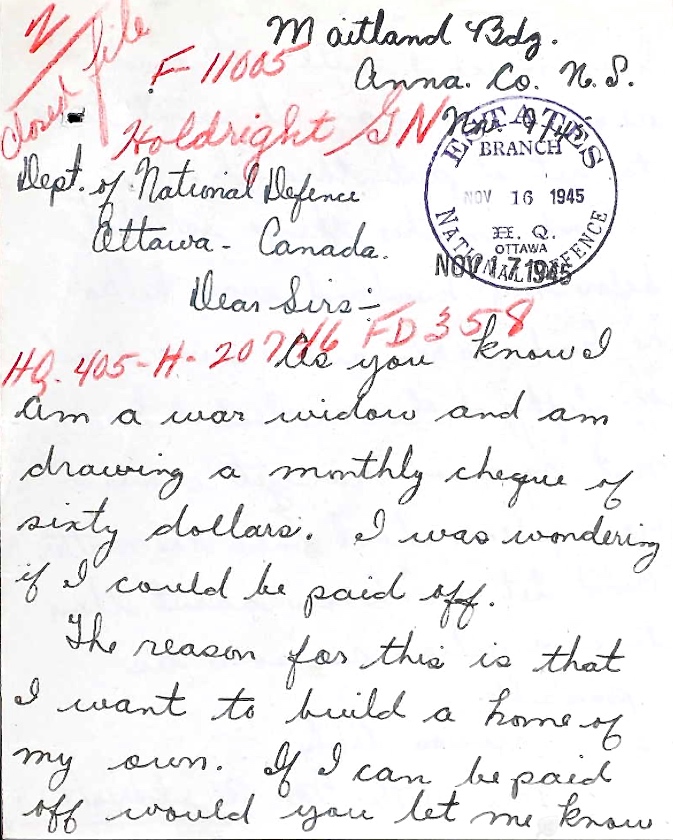 2
closed file
Maitland Bdg.
F 11005
Anna. Co. N.S.
Holdright GN
Nov. 9/45
ESTATES
BRANCH
NOV 16 1945
H. Q.
OTTAWA
NATIONAL DEFENCE
NOV 17 1945
Dept. of National Defence
Ottawa - Canada.
Dear Sirs:-
HQ. 405-H-20746 FD 358
As you know I
am a war widow and am
drawing a monthly cheque of
sixty dollars. I was wondering
if I could be paid off.
The reason for this is that
I want to build a home of
my own. If I can be paid
off would you let me know